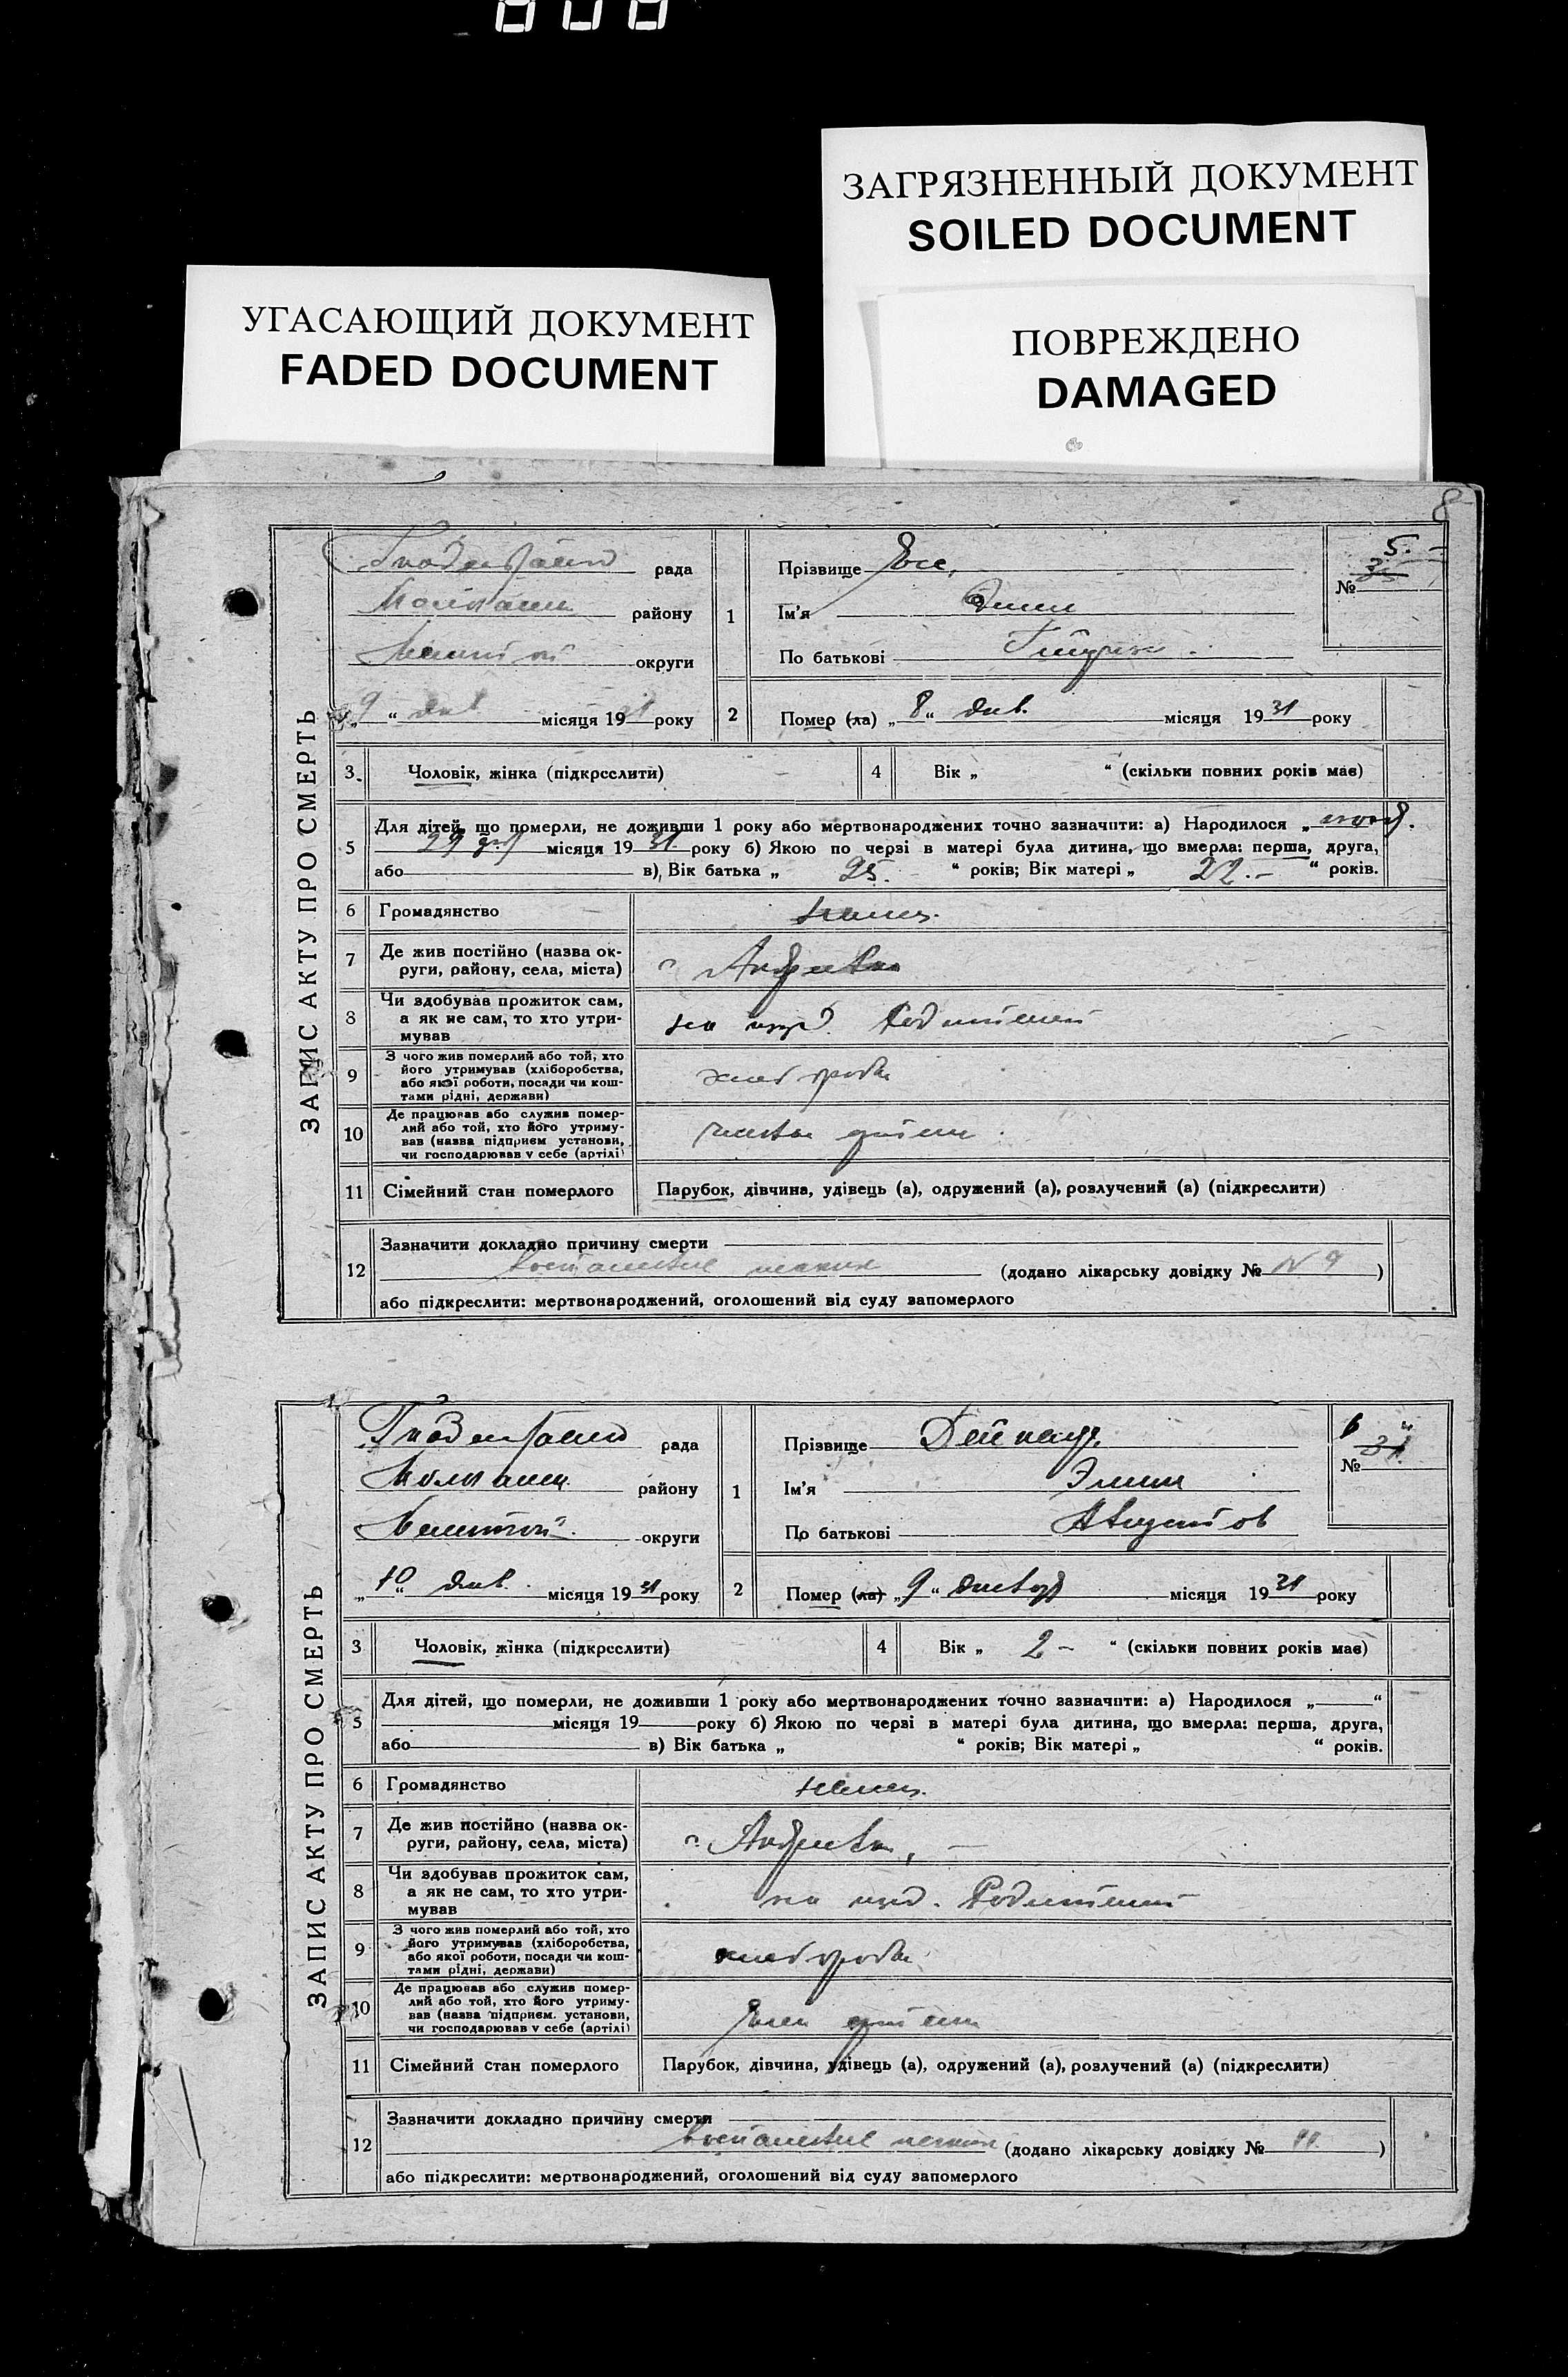 ЗАГРЯЗНЕННЫЙ ДОКУМЕНТ
SOILED DOCUMENT
УГАСАЮЩИЙ ДОКУМЕНТ
FADED DOCUMENT
ПОВРЕЖДЕНО
DAMAGED
8
ЗАПИС АКТУ ПРО СМЕРТЬ
рада
району
округи
„9“ янв місяця 1931 року
1
Прізвище
Ім'я
По батькові
№ 5.
2
Помер (ла) „8“ янв. місяця 1931 року
3. Чоловік, жінка (підкреслити)
4 Вік „ “ (скільки повних років має)
5 Для дітей, що померли, не доживши 1 року або мертвонароджених точно зазначити: а) Народилося „
29 місяця 1931 року б) Якою по черзі в матері була дитина, що вмерла: перша, друга,
або в) Вік батька „ 25. “ років; Вік матері „ 22. – “ років.
6 Громадянство немец.
7 Де жив постійно (назва ок-
руги, району, села, міста)
8 Чи здобував прожиток сам,
а як не сам, то хто утри-
мував
9 З чого жив померлий або той, хто
його утримував (хліборобства,
або якої роботи, посади чи кош-
тами рідні, держави)
10 Де працював або служив помер-
лий або той, хто його утриму-
вав (назва підприєм установи,
чи господарював у себе (артілі)
11 Сімейний стан померлого Парубок, дівчина, удівець (а), одружений (а), розлучений (а) (підкреслити)
12 Зазначити докладно причину смерти
воспаление легких (додано лікарську довідку № N 9)
або підкреслити: мертвонароджений, оголошений від суду запомерлого
ЗАПИС АКТУ ПРО СМЕРТЬ
рада
району
округи
„10“ янв. місяця 1931 року
1
Прізвище
Ім'я Эмиль
По батькові Августов
№ 6
2
Помер (ла) „9“ января місяця 1931 року
3 Чоловік, жінка (підкреслити)
4 Вік „ 2 – “ (скільки повних років має)
5 Для дітей, що померли, не доживши 1 року або мертвонароджених точно зазначити: а) Народилося „ “
місяця 19 року б) Якою по черзі в матері була дитина, що вмерла: перша, друга,
або в) Вік батька „ “ років; Вік матері „ “ років.
6 Громадянство немец.
7 Де жив постійно (назва ок-
руги, району, села, міста)
8 Чи здобував прожиток сам,
а як не сам, то хто утри-
мував
9 З чого жив померлий або той, хто
його утримував (хліборобства,
або якої роботи, посади чи кош-
тами рідні, держави)
10 Де працював або служив помер-
лий або той, хто його утриму-
вав (назва підприєм. установи,
чи господарював у себе (артілі)
11 Сімейний стан померлого Парубок, дівчина, удівець (а), одружений (а), розлучений (а) (підкреслити)
12 Зазначити докладно причину смерти
воспаление легких (додано лікарську довідку № 11)
або підкреслити: мертвонароджений, оголошений від суду запомерлого